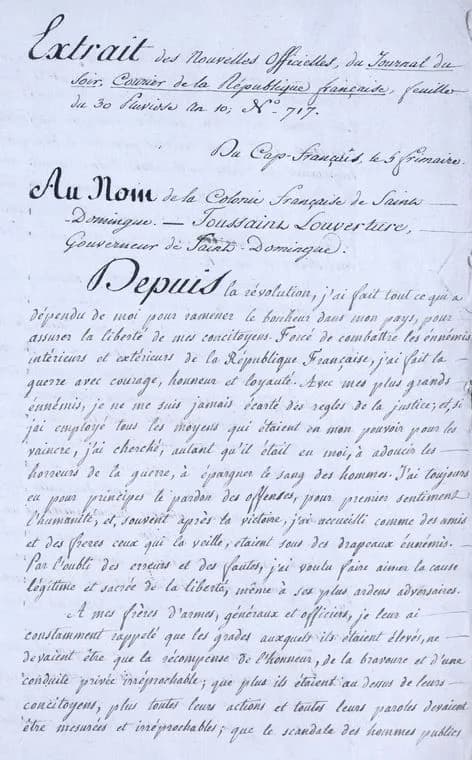 Extrait des Nouvelles Officielles, du Journal du
soir, Courier de la République française, feuille
du 30 Pluviose An 10; N.º 717.
Du Cap-Français, le 5 frimaire.
Au Nom de la Colonie Française de Saint
-Domingue. — Toussaint Louverture,
Gouverneur de Saint-Domingue.
Depuis la révolution, j'ai fait tout ce qui a
dépendu de moi pour ramener le bonheur dans mon pays, pour
assurer la liberté de mes concitoyens. Forcé de combattre les énnémis
intérieurs et extérieurs de la République Française, j'ai fait la
guerre avec courage, honneur et loyauté. Avec mes plus grands
énnémis, je ne me suis jamais écarté des regles de la justice; et, si
j'ai employé tous les moyens qui étaient en mon pouvoir pour les
vaincre, j'ai cherché, autant qu'il était en moi, à adoucir les
horreurs de la guerre, à épargner le sang des hommes. J'ai toujours
eu pour principes le pardon des offenses, pour premier sentiment
l'humanité, et, souvent après la victoire, j'ai accueilli comme des amis
et des freres ceux qui la veille, étaient sous des drapeaux énnémis.
Par l'oubli des erreurs et des fautes, j'ai voulu faire aimer la cause
légitime et sacrée de la liberté, même à ses plus ardens adversaires.
A mes frères d'armes, généraux et officiers, je leur ai
constamment rappelé que les grades auxquels ils étaient élevés, ne
devaient être que la récompense de l'honneur, de la bravoure et d'une
conduite privée irréprochable; que plus ils étaient au dessus de leurs
concitoyens, plus toutes leurs actions et toutes leurs paroles devaient
être mesurées et irréprochables; que le scandale des hommes publics